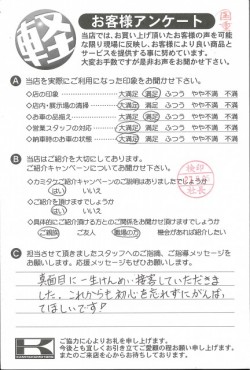 軽
お客様アンケート
当店では、お買い上げ頂いたお客様の声を可能
な限り現場に反映し、お客様により良い商品と
サービスを提供する事に努めています。
大変お手数ですが是非お声をお聞かせ下さい。
A 当店を実際にご利用になった印象をお聞かせ下さい。
◇店の印象 大満足 満足 ふつう やや不満 不満
◇店内・展示場の清掃 大満足 満足 ふつう やや不満 不満
◇お車の品揃え 大満足 満足 ふつう やや不満 不満
◇営業スタッフの対応 大満足 満足 ふつう やや不満 不満
◇納車時のお車の状態 大満足 満足 ふつう やや不満 不満
B 当店はご紹介を大切にしております。
ご紹介キャンペーンについてお聞かせ下さい。
◇カミタウご紹介キャンペーンのご説明はありましたでしょうか
はい いいえ
◇ご紹介を頂けますでしょうか
はい いいえ
◇具体的にご紹介頂ける方との関係をお聞かせ頂けますでしょうか
ご親戚 ご友人 職場の方 機会があれば紹介したい
C 担当させて頂きましたスタッフへのご指摘、ご指導メッセージを
お願いします。応援メッセージもぜひお願いします。
真面目に一生けんめい接客していただきま
した。これからも初心を忘れずにがんばっ
てほしいです!
K
ご協力に心よりお礼を申し上げます。
今後とも宜しくお引き立てご愛顧の程お願い申し上げます。
またのご来店を心からお待ちしております。